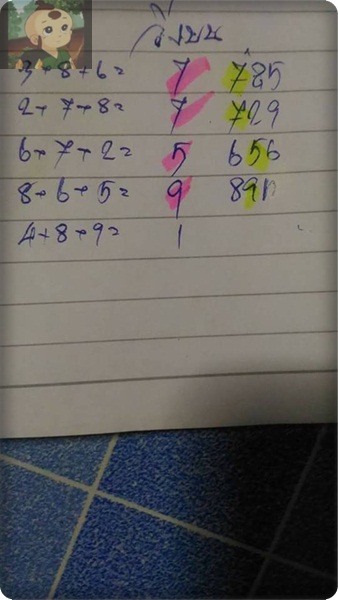 วิ่งบน
3+8+6= 7 785
2+7+8= 7 729
6+7+2= 5 656
8+6+5= 9 891
4+8+9= 1